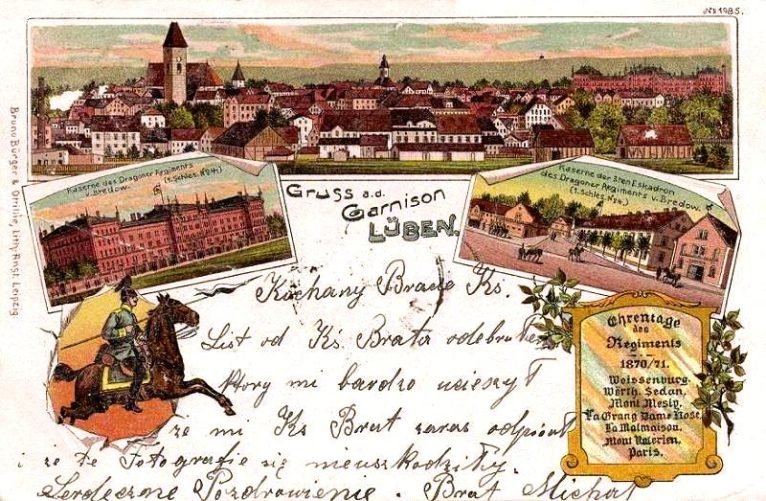 No 1985.
Bruno Bürger & Ottillie, Lith. Anst. Leipzig
Kaserne des Dragoner Regiments
v. Bredow.
(1. Schles. No 4.)
Gruss a.d.
Garnison
LÜBEN.
Kaserne der 5ten Eskadron
des Dragoner Regiments v. Bredow.
(1. Schles. No 4.)
Kochany Bracie Ks.
List od Ks Brata odebrałem
ktory mi bardzo ucieszył
ze mi Ks Brat zaras odpisał
i ze te Fotografie się nieuszkodziły.
Serdeczne Pozdrowienie. Brat Michał
Ehrentage
des
Regiments
1870/71.
Weissenburg.
Wörth. Sedan,
Mont Mesly,
La Grang Dame Rose
La Malmaison.
Mont Valerien.
Paris.